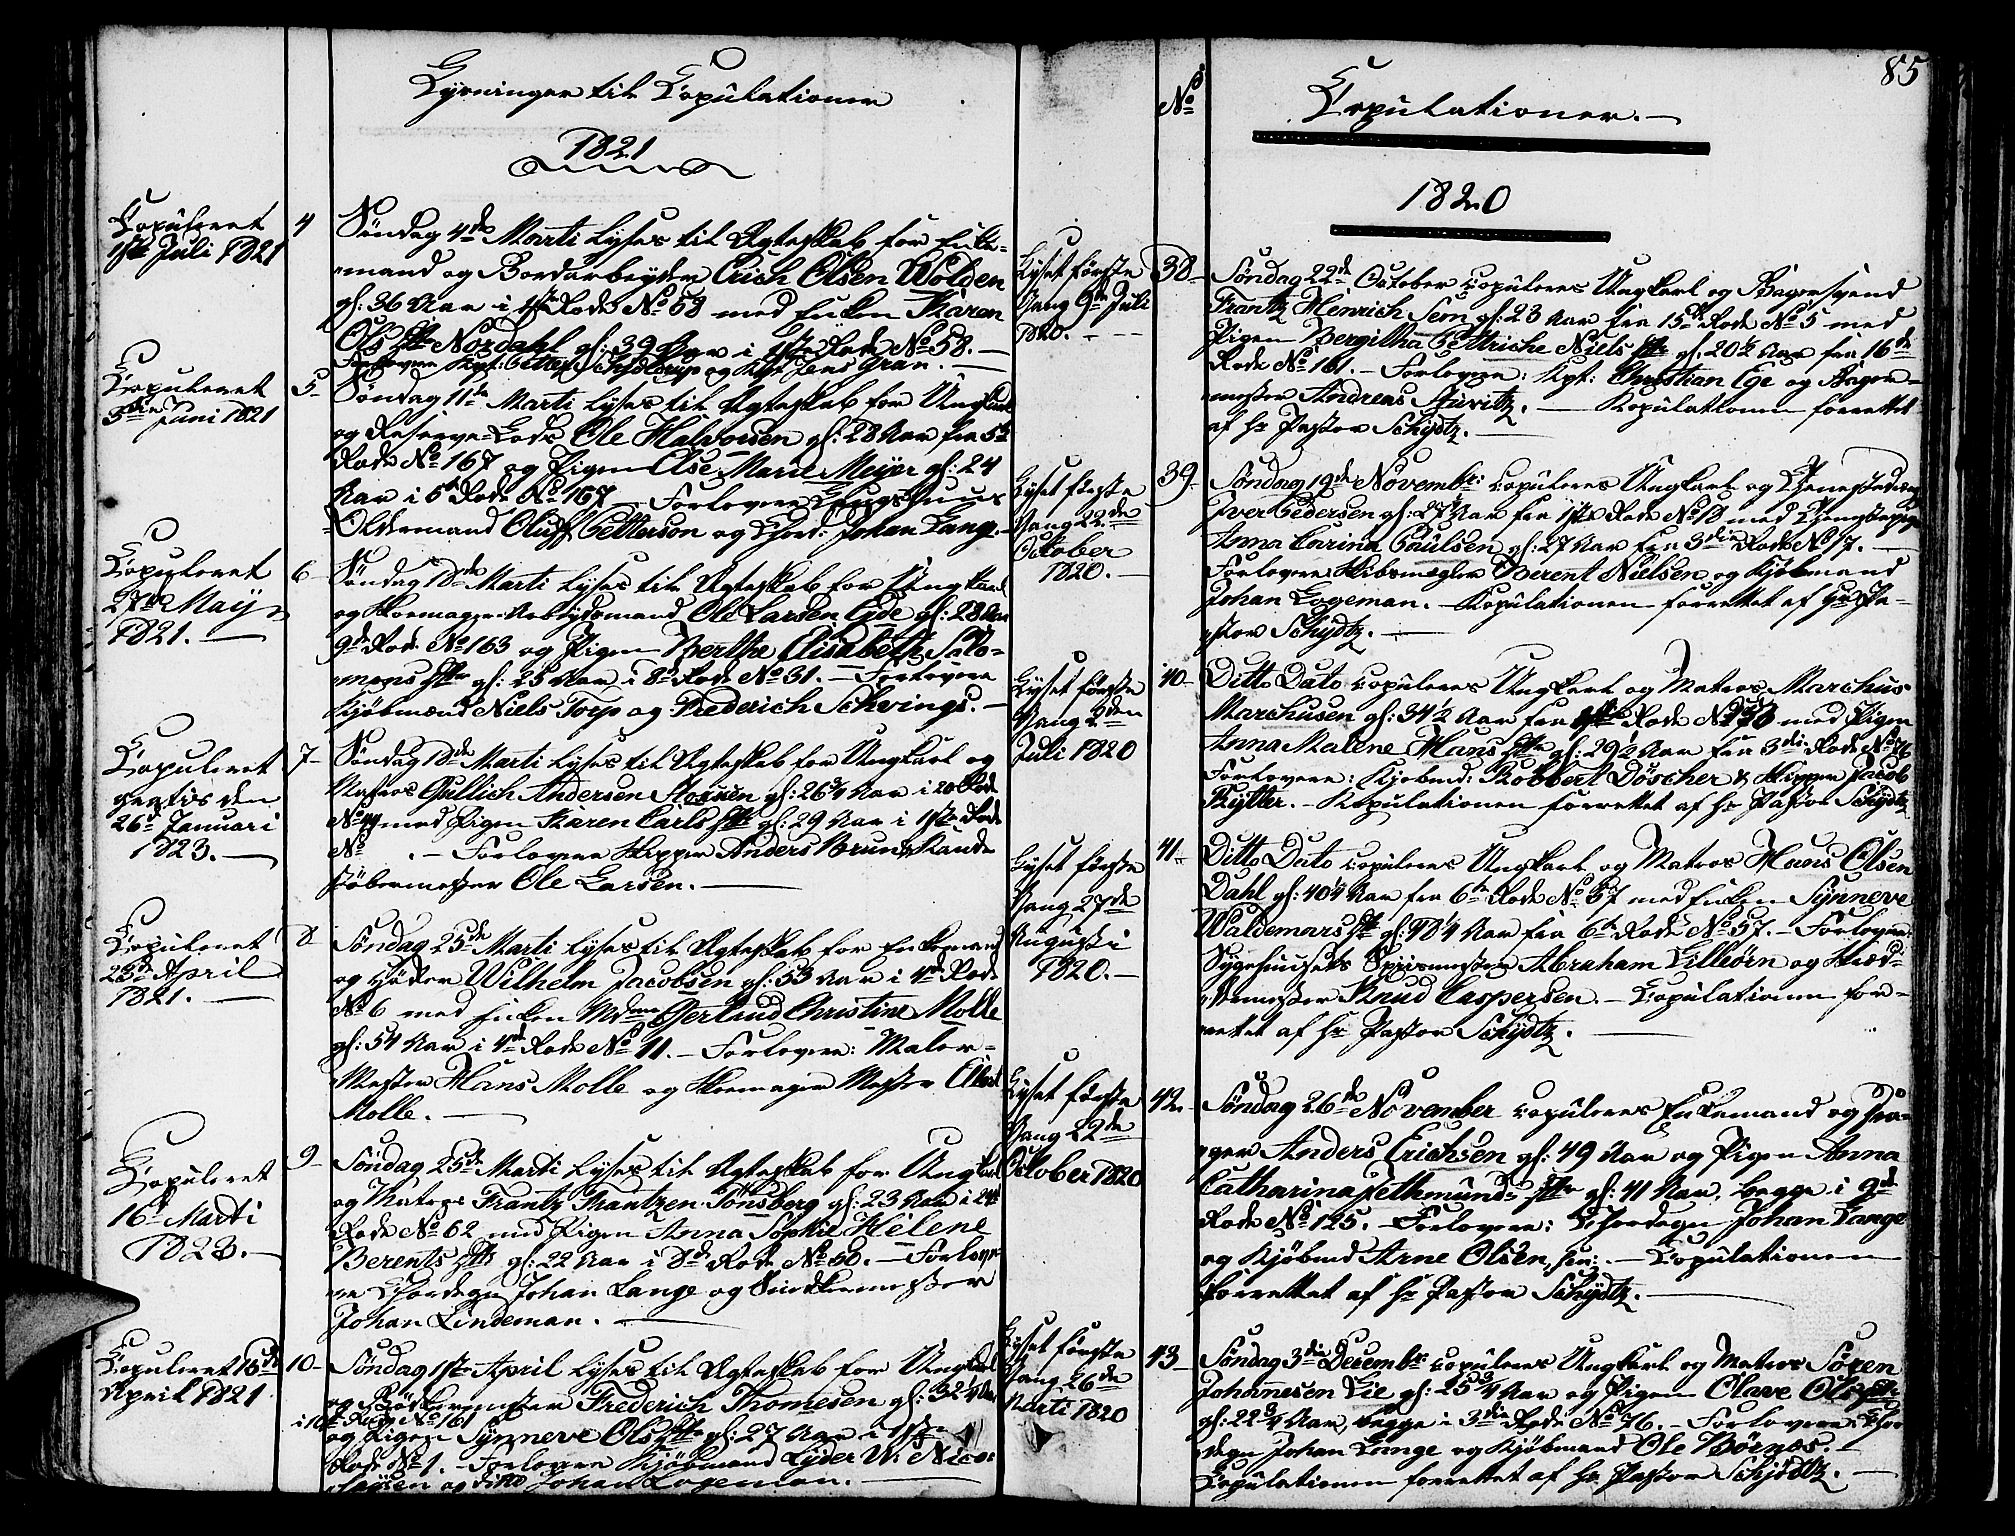 Lysninger til Copulationer
1821
Copuleret
1ste Juli 1821
4
Søndag 4de Marti lyses til Ægteskab for Enke-
mand og Bordarbeyder Erich Olsen Wolden
gl: 36 Aar i 4de Rode No 58 med Enken Karen
Ols Dtr Nordahl gl: 39 Aar i 4de Rode No 58. —
Forlovere Kpt: Petter Schjeldrup og Kpt Jens Gran. —
Copuleret
3die Juni 1821
5
Søndag 11te Marti lyses til Ægteskab for Ungkarl
og Reserve-Lods Ole Halvorsen gl: 28 Aar fra 5te
Rode No 167 og Pigen Else Marie Meyer gl: 24
Aar i 5te Rode No 167 — Forlovere Laugshuus
Oldermand Oluff Petterson og Chord: Johan Lange.
Copuleret
27de Maij
1821. —
6
Søndag 18de Marti lyses til Ægteskab for Ungkarl
og Skomager-Arbejdsmand Ole Larsen Eide gl: 28 Aar
9de Rode No 163 og Pigen Berthe Elisabeth Salo-
mons Dtr gl: 25 Aar i 8de Rode No 61. — Forlovere
Kjøbmænd Niels Torp og Frederich Schvings. —
Copuleret
den
26de Januari
1823. —
7
Søndag 18de Marti lyses til Ægteskab for Ungkarl og
Matros Gullich Andersen gl: 26 3/4 Aar i 20de Rode
No 44 med Pigen Karen Carls Dtr gl: 29 Aar i 1ste Rode
No . — Forlovere Skipper Anders Brun & Kande
støbermester Ole Larsen. —
Copuleret
23de April
1821. —
8
Søndag 25de Marti lyses til Ægteskab for Enkemand
og Høker Wilhelm Jacobsen gl: 53 Aar i 4de Rode
No 6 med Enken Mdme Gjertrud Christine Molle
gl: 54 Aar i 4de Rode No 11. — Forlovere: Maler-
Mester Hans Molle og Skomager Mester Eilert
Molle. —
Copuleret
16de Marti
1823. —
9
Søndag 25de Marti lyses til Ægteskab for Ungkarl
og Matros Frantz Frantzen Tønsberg gl: 23 Aar i 24de
Rode No 62 med Pigen Anna Sophie Helene
Berents Dtr gl: 22 Aar i 8de Rode No 50. — Forlove-
re Chordegn Johan Lange og Snedkermester
Johan Lindeman. —
Copuleret 15de
April 1821
10
Søndag 1ste April lyses til Ægteskab for Ungkarl
og Bødkermester Frederich Thomesen gl: 32 1/4 Aar
i 16de Rode No 161
og Pigen Synneve Ols Dtr gl: 27 Aar i 1ste
Rode No 1. — Forlovere Kjøbmand Lyder W. Nico-
laysen og ditto Johan Logeman. —
85
No
Copulationer. —
1820
Lyset første
Gang 9de Juli
1820. —
38
Søndag 22de October copuleres Ungkarl og Bagersvend
Frantz Henrich Sem gl: 23 Aar fra 15de Rode No 5 med
Pigen Bergitha Petriche Niels Dtr gl: 20 1/2 Aar fra 16de
Rode No 161. — Forlovere: Kpt: Christian Ege og Bager-
mester Andreas Juvitz. — Kopulationen forrettet
af Hr Pastor Schydtz. —
Lyset første
Gang 22de
October
1820. —
39
Søndag 19de Novembr: copuleres Ungkarl og Tjenestedreng
Iver Pedersen gl: 27 1/2 Aar fra 1ste Rode No 18 med Tjenestepige
Anna Carina Paulsen gl: 27 Aar fra 3die Rode No 17. —
Forlovere Skibsmægler Berent Nielsen og Kjøbmand
Johan Logeman. — Kopulationen forrettet af Hr Pa-
stor Schydtz. —
Lyset første
Gang 2den
Juli 1820
40
Ditto Dato copuleres Ungkarl og Matros Marchus
Marchusen gl: 34 1/2 Aar fra Rode No med Pigen
Anna Malene Hans Dtr gl: 29 1/2 Aar fra 3die Rode No 76
Forlovere: Kjøbmd: Robbert Döscher & Skipper Jacob
Rytter. — Kopulationen forrettet af Hr Pastor Schydtz
Lyset første
Gang 27de
Augusti
1820. —
41
Ditto Dato copuleres Ungkarl og Matros Hans Olsen
Dahl gl: 40 1/4 Aar fra 6te Rode No 57 med Enken Synneve
Waldemars Dtr gl: 48 1/4 Aar fra 6te Rode No 57. — Forlovere
Sygehuusets Spiismester Abraham Lilliörn og Skræd-
dermester Knud Caspersen. — Copulationen for-
rettet af Hr Pastor Schydtz. —
Lyset første
Gang 22de
October 1820
42
Søndag 26de November copuleres Enkemand og Dra-
ger Anders Erichsen gl: 49 Aar og Pigen Anna
Catharina Jethmunds Dtr gl: 41 Aar, begge i 9de
Rode No 125. — Forlovere: Chordegn Johan Lange
og Kjøbmd Arne Olsen, sen:. — Copulationen
forrettet af Hr Pastor Schydtz. —
Lyset første
Gang 26de
Marti 1820
43
Søndag 3die Decembr copuleres Ungkarl og Matros Soren
Johannesen Lie gl: 25 3/4 Aar og Pigen Olave Ols Dtr
gl: 22 3/4 Aar, begge i 3die Rode No 76. — Forlovere Chor
degn Johan Lange og Kjøbmand Ole Børnæs. —
Copulationen forrettet af Hr Pastor Schjødtz. —